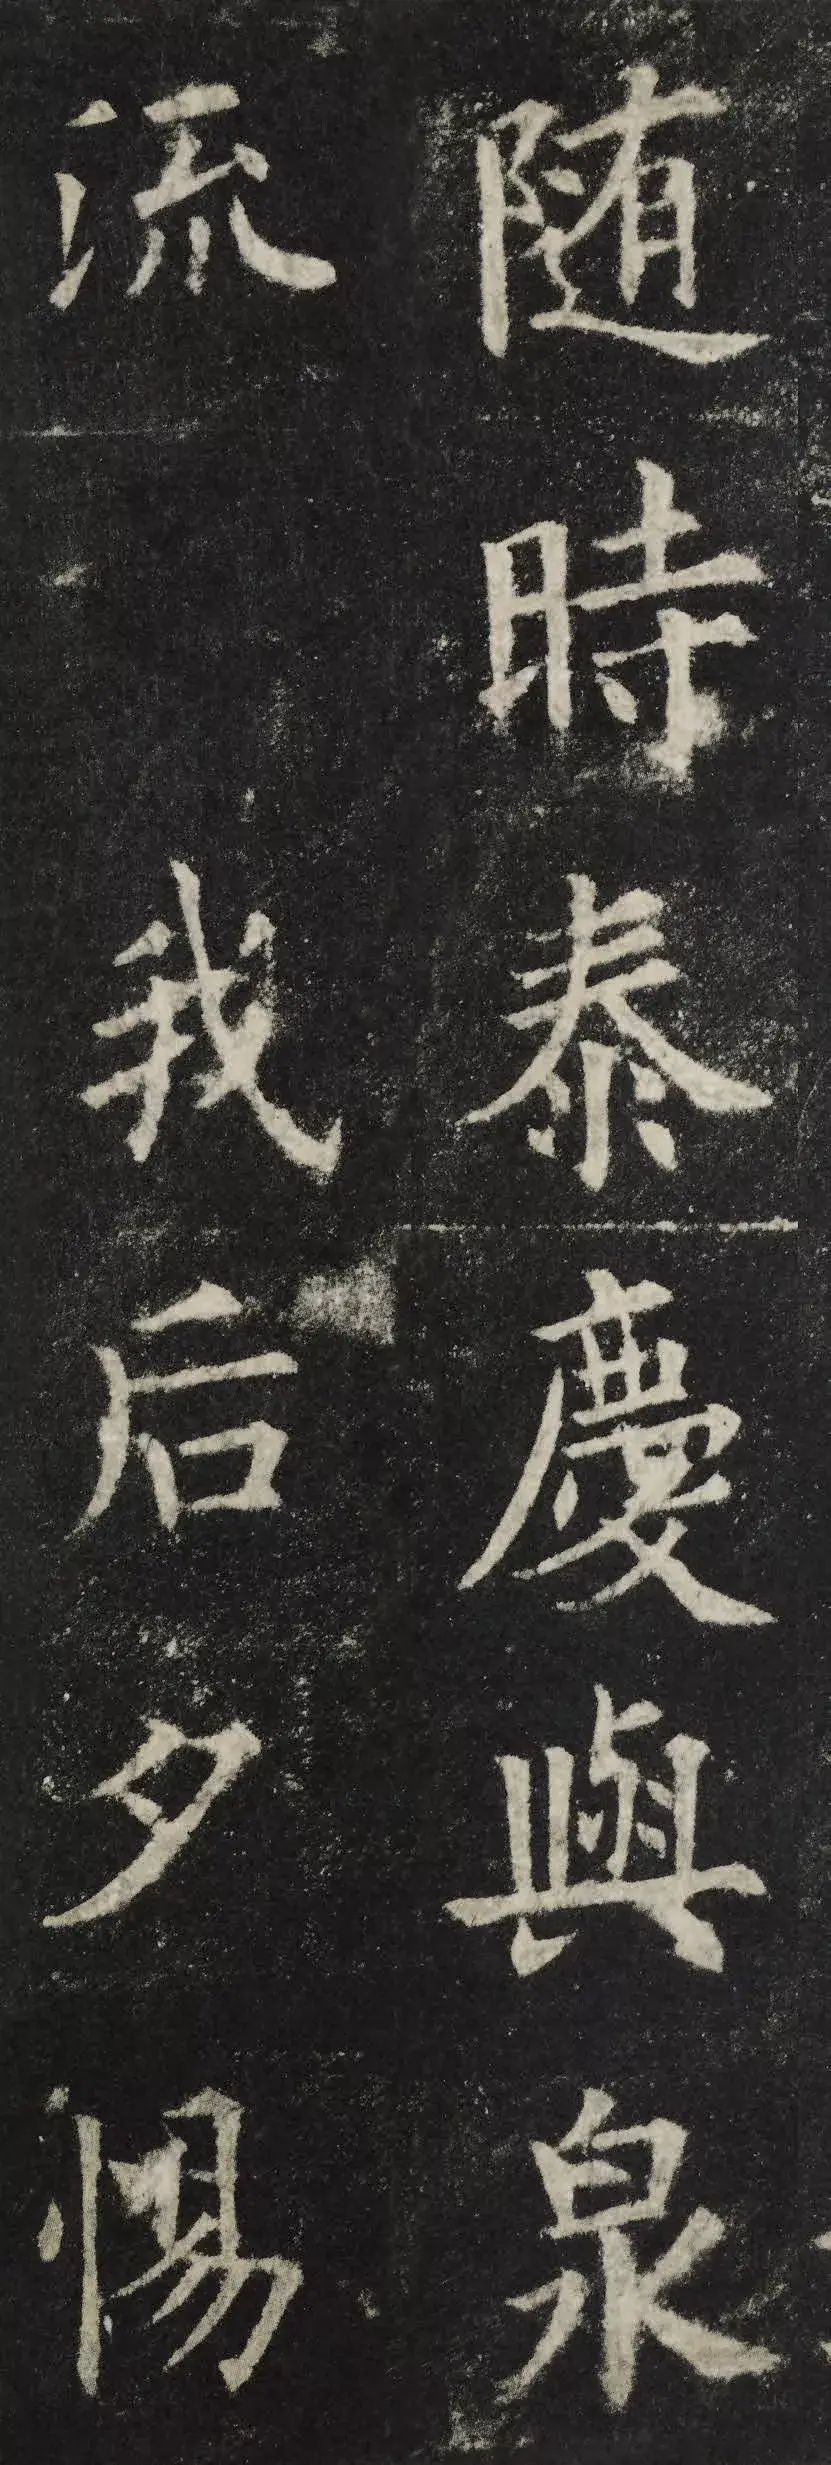 随時泰慶與泉
流我后夕惕